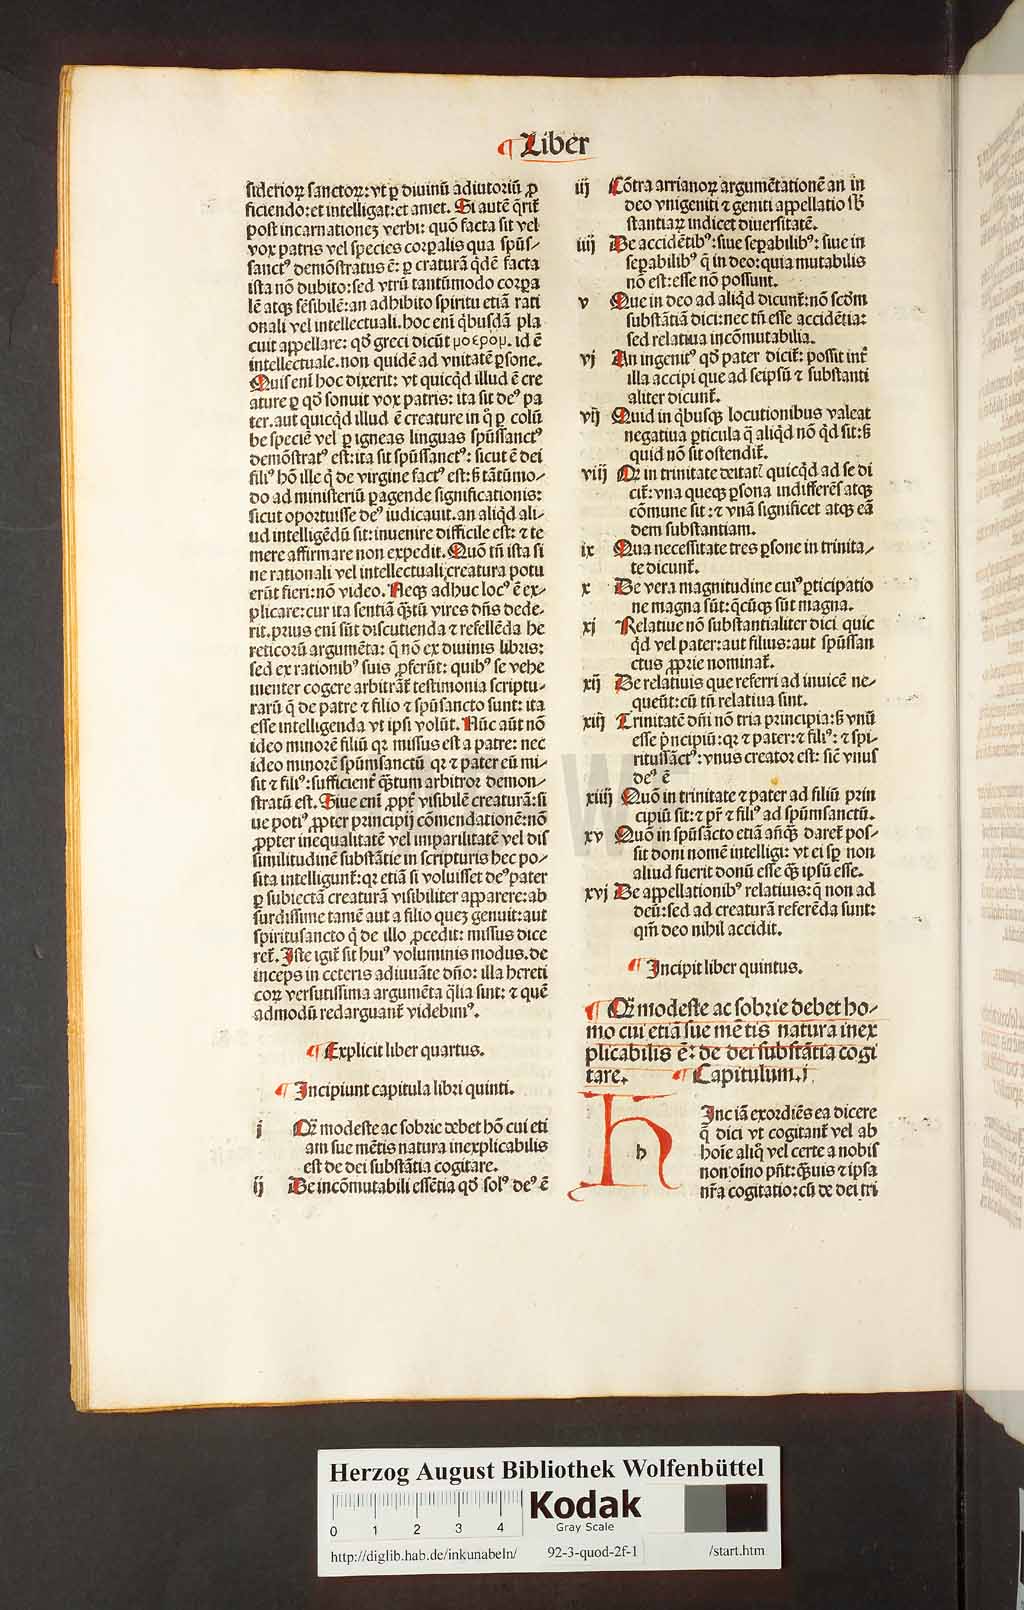 ¶ Liber
siderioꝝ sanctoꝝ: vt ꝑ diuinū adiutoriū ꝓ
ficiendo: et intelligat: et amet. Si autē q̄rit̄
post incarnationeꝫ verbi: quō facta sit vel
vox patris vel species corꝑalis qua spūs⸗
sanctꝰ demōstratus ē: ꝑ craturā qͥdē facta
ista nō dubito: sed vtrū tantūmodo corꝑa
lē atqꝫ sēsibilē: an adhibito spiritu etiā rati
onali vel intellectuali. hoc enī qͥbusdā pla
cuit appellare: qō greci dicūt μοερομ. id ē
intellectuale. non quidē ad vnitatē ꝑsone.
Quis enī hoc dixerit: vt quicqͥd illud ē cre
ature ꝑ qō sonuit vox patris: ita sit deꝰ pa
ter. aut quicqͥd illud ē creature in qͦ ꝑ colū
be speciē vel ꝑ igneas linguas spūssanctꝰ
demōstratꝰ est: ita sit spūssanctꝰ: sicut ē dei
filiꝰ hō ille qͥ de virgine factꝰ est: sꝫ tātūmo⸗
do ad ministeriū ꝑagende significationis:
sicut oportuisse deꝰ iudicauit. an aliqͥd ali⸗
ud intelligēdū sit: inuenire difficile est: ⁊ te
mere affirmare non expedit. Quō tn̄ ista si
ne rationali vel intellectuali creatura potu
erūt fieri: nō video. Neqꝫ adhuc locꝰ ē ex⸗
plicare: cur ita sentiā qͣstū vires dn̄s dede⸗
rit. prius enī sūt discutienda ⁊ refellēda he
reticorū argumēta: q̄ nō ex diuinis libris:
sed ex rationibꝰ suis ꝓferūt: quibꝰ se vehe
menter cogere arbitrāt̄ testimonia scriptu⸗
rarū q̄ de patre ⁊ filio ⁊ spūsancto sunt: ita
esse intelligenda vt ipsi volūt. Nūc aūt nō
ideo minorē filiū qꝛ missus est a patre: nec
ideo minorē spūmsanctū qꝛ ⁊ pater eū mi⸗
sit ⁊ filiꝰ: sufficient̄ qͣstum arbitror demon⸗
stratū est. Siue enī ꝓpt̄ visibilē creaturā: si
ue potiꝰ ꝓpter principij cōmendationē: nō
ꝓpter inequalitatē vel imparilitatē vel dis
similitudinē substātie in scripturis hec po⸗
sita intelligunt̄: qꝛ etiā si voluisset deꝰ pater
ꝑ subiectā creaturā visibiliter apparere: ab
surdissime tamē aut a filio queꝫ genuit: aut
spiritusancto qͥ de illo ꝓcedit: missus dice
ret̄. Iste igit̄ sit huiꝰ voluminis modus. de
inceps in ceteris adiuuāte dn̄o: illa hereti
coꝝ versutissima argumēta qͣlia sint: ⁊ quē
admodū redarguant̄ videbimꝰ.
¶ Explicit liber quartus.
¶ Incipiunt capitula libri quinti.
j Qꝛ modeste ac sobrie debet hō cui eti
am sue mētis natura inexplicabilis
est de dei substātia cogitare.
ij De incōmutabili essētia qō solꝰ deꝰ ē
iij Cōtra arrianoꝝ argumētationē an in
deo vnigeniti ⁊ geniti appellatio sb̄
stantiaꝝ indicet diuersitatē.
iiij De accidētibꝰ: siue seꝑabilibꝰ: siue in
seꝑabilibꝰ q̄ in deo: quia mutabilis
nō est: esse nō possunt.
v Que in deo ad aliqͥd dicunt̄: nō scd̄m
substātiā dici: nec tn̄ esse accidētia:
sed relatiua incōmutabilia.
vj An ingenitꝰ qō pater dicit̄: possit int̄
illa accipi que ad seipsū ⁊ substanti
aliter dicunt̄.
vij Quid in qͥbusqꝫ locutionibus valeat
negatiua ꝑticula q̄ aliqͥd nō qͥd sit: sꝫ
quid nō sit ostendit̄.
viij Qꝛ in trinitate deitatꝭ quicqͥd ad se di
cit̄: vna queqꝫ ꝑsona indifferēs atqꝫ
cōmune sit: ⁊ vnā significet atqꝫ eā
dem substantiam.
ix Qua necessitate tres ꝑsone in trinita⸗
te dicunt̄.
x De vera magnitudine cuiꝰ ꝑticipatio
ne magna sūt: qͥcūqꝫ sūt magna.
xj Relatiue nō substantialiter dici quic
qͥd vel pater: aut filius: aut spūssan
ctus ꝓprie nominat̄.
xij De relatiuis que referri ad inuicē ne⸗
queūt: cū tn̄ relatiua sint.
xiij Trinitatē dn̄i nō tria principia: sꝫ vnū
esse pͥncipiū: qꝛ ⁊ pater: ⁊ filiꝰ: ⁊ spi⸗
ritussāctꝰ: vnus creator est: sic̄ vnus
deꝰ ē
xiiij Quō in trinitate ⁊ pater ad filiū prin
cipiū sit: ⁊ pr̄ ⁊ filiꝰ ad spūmsanctū.
xv Quō in spūsācto etiā an̄qͣꝫ daret̄ pos⸗
sit doni nomē intelligi: vt ei sp̄ non
aliud fuerit donū esse qͣꝫ ipsū esse.
xvj De appellationibꝰ relatiuis: q̄ non ad
deū: sed ad creaturā referēda sunt:
qm̄ deo nihil accidit.
¶ Incipit liber quintus.
¶ Qꝛ modeste ac sobrie debet ho⸗
mo cui etiā sue mētis natura inex
plicabilis ē: de dei substātia cogi
tare. ¶ Capitulum. j
h
Hinc iā exordiēs ea dicere
q̄ dici vt cogitant̄ vel ab
hoīe aliqͦ vel certe a nobis
non oīno pn̄t: qͣꝫuis ⁊ ipsa
nr̄a cogitatio: cū de dei tri
Herzog August Bibliothek Wolfenbüttel
0 1 2 3 4
Kodak
Gray Scale
http://diglib.hab.de/inkunabeln/ 92-3-quod-2f-1 /start.htm